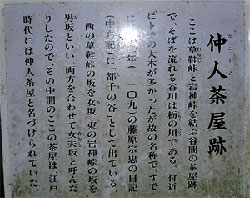 仲人茶屋跡
ここは草鞋峠と岩神峠を結ぶ谷間の茶屋跡
で、そばを流れる谷川は栃の川である。付近
に栃の大木が多かったが故の名称で、すで
に天仁二年(一一〇九)の藤原宗忠の日記
(中右記)に「都千の谷」として出ている。
西の草鞋峠の坂を女坂、東の岩神峠の坂を
男坂といい、両方を合わせて女夫坂と呼んだ
りしたので、その中間のここの茶屋は江戸
時代には仲人茶屋と名づけられていた。